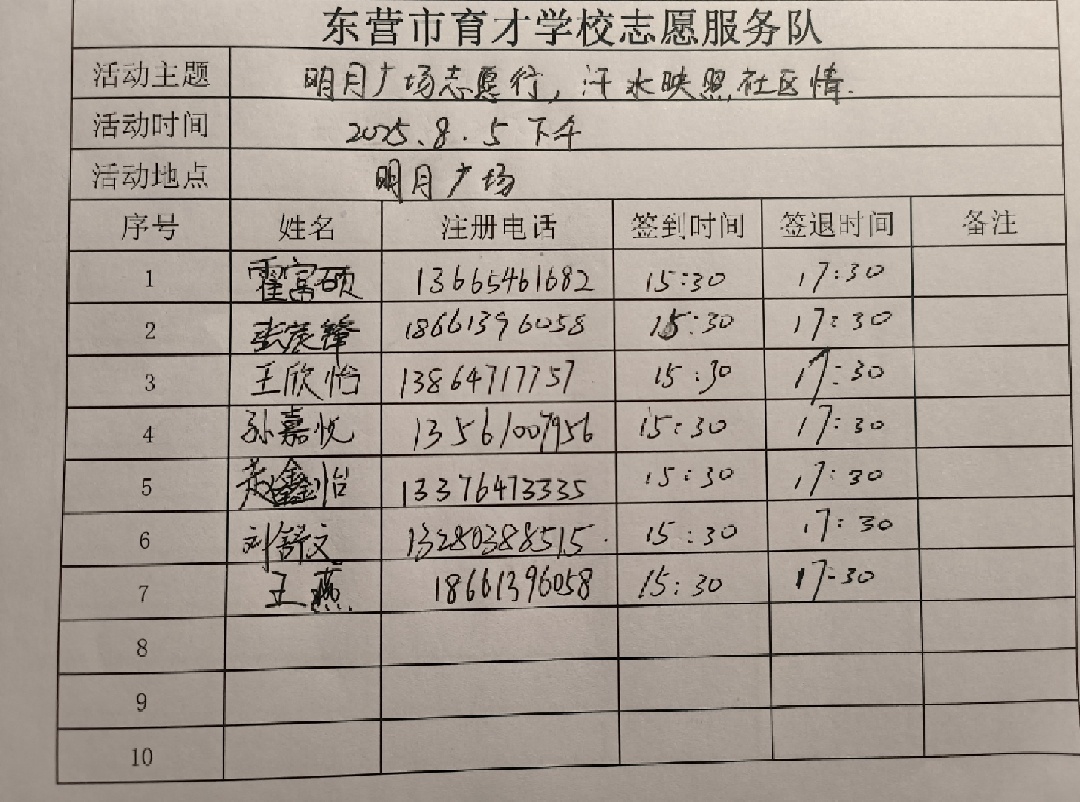 东营市育才学校志愿服务队
活动主题 明月广场志愿行，汗水映照社区情.
活动时间 2025.8.5下午
活动地点 明月广场
序号 姓名 注册电话 签到时间 签退时间 备注
1 霍富硕 13665461682 15:30 17:30
2 张宸锋 18661396058 15:30 17:30
3 王欣怡 13864717757 15:30 17:30
4 孙嘉悦 13561007956 15:30 17:30
5 赵鑫怡 13376473335 15:30 17:30
6 刘舒文 13280388515 15:30 17:30
7 王燕 18661396058 15:30 17:30
8
9
10